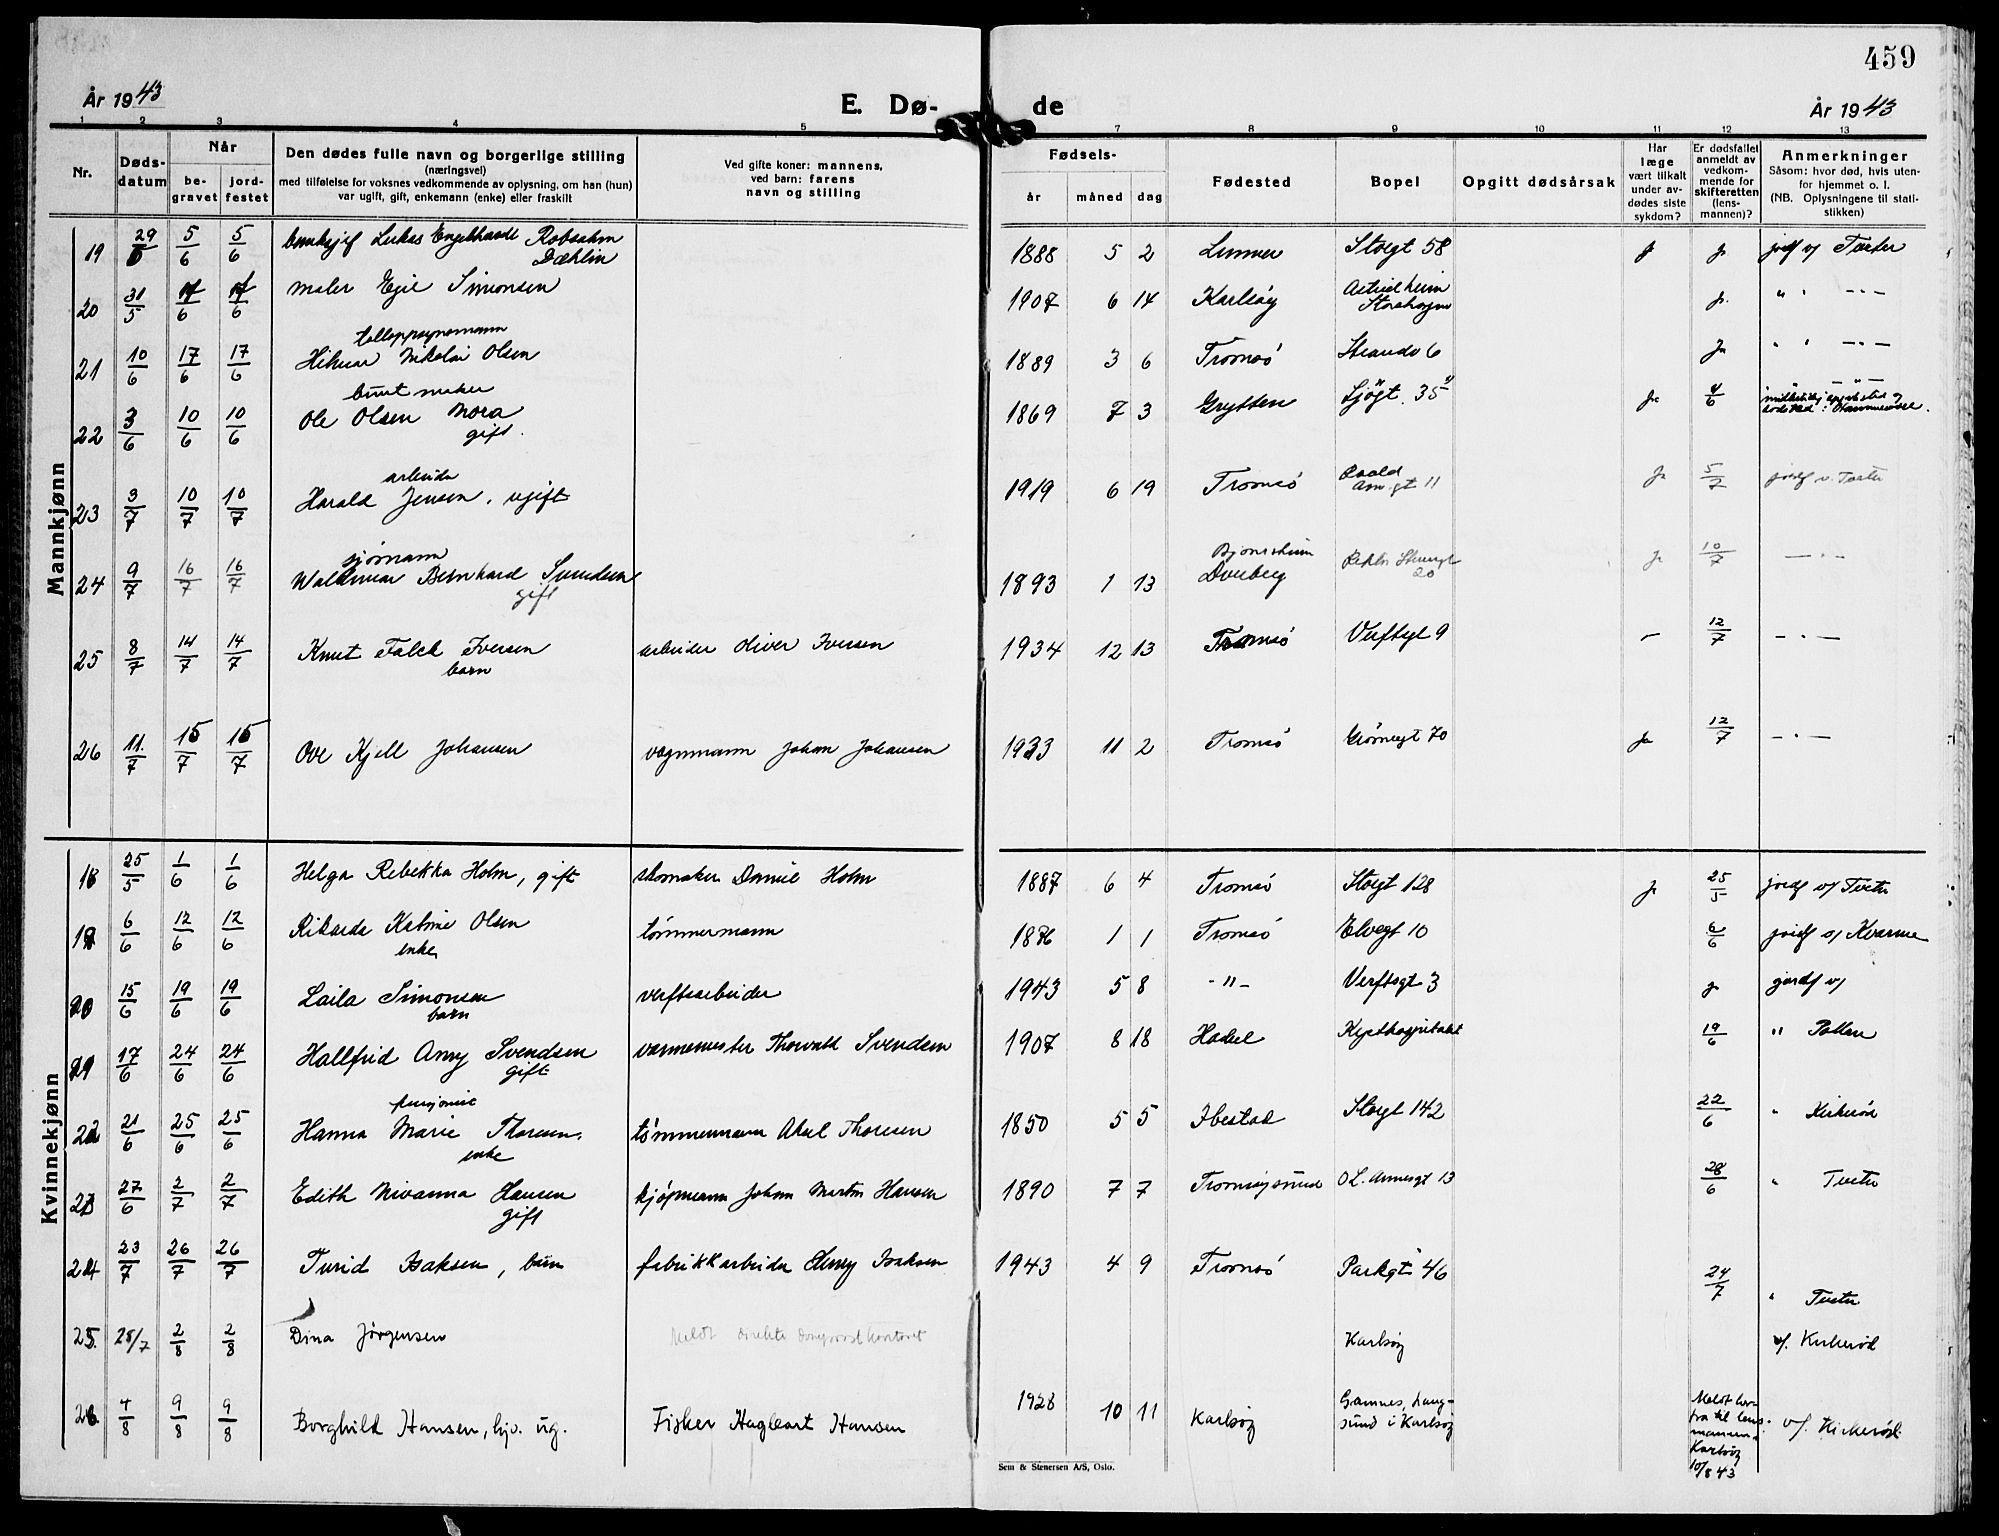 459
År 1943
E. Dø-
de
År 1943
1 2 3 4 5 7 8 9 10 11 12 13
Nr.
Døds-
datum
Når
be-
gravet
jord-
festet
Den dødes fulle navn og borgerlige stilling
(næringsvei)
med tilføielse for voksnes vedkommende av oplysning, om han (hun)
var ugift, gift, enkemann (enke) eller fraskilt
Ved gifte koner: mannens,
ved barn: farens
navn og stilling
Fødsels-
år måned dag
Fødested
Bopel
Opgitt dødsårsak
Har
læge
vært tilkalt
under av-
dødes siste
sykdom?
Er dødsfallet
anmeldt av
vedkom-
mende for
skifteretten
(lens-
mannen)?
Anmerkninger
Såsom: hvor død, hvis uten-
for hjemmet o. l.
(NB. Oplysningene til stati-
stikken)
Mannkjønn
19 29 5/6 5/6 Lukas Engelhardt Robsahm 1888 5 2 Lunner Storgt 58
Dæhlin
20 31/5 maler Egil Simonsen 1907 6 14 Karlsøy
tolloppsynsmann
21 10/6 17/6 17/6 Hilmar Nikolai Olsen 1889 3 6 Tromsø 6 Ja
buntmaker
22 3/6 10/6 10/6 Ole Olsen Mora 1869 7 3 Grytten Sjøgt. 35 Ja 4/6
gift.
arbeider
23 3/7 10/7 10/7 Harald Jensen, ugift 1919 6 19 Tromsø 11 Ja 5/7
sjømann
24 9/7 16/7 16/7 Waldemar Bernhard Svendsen 1893 1 13 Dverberg 20 Ja 10/7 —"—
gift
25 8/7 14/7 14/7 Knut Falck Iversen arbeider Oliver Iversen 1934 12 13 Tromsø Verftsgt 9 – 12/7 —"—
barn
26 11/7 15/7 15/7 Ove Kjell Johansen vognmann Johan Johansen 1933 11 2 Tromsø Grønnegt 70 Ja 12/7 —"—
Kvinnekjønn
18 25/5 1/6 1/6 Helga Rebekka Holm, gift skomaker Daniel Holm 1887 6 4 Tromsø Storgt 128 25/5 jordf v/ Tveter
6/6 12/6 12/6 Rikarda Katrine Olsen tømmermann 1 1 Tromsø Elvegt 10 6/6 jordf v/ Kvarme
enke
20 15/6 19/6 19/6 Laila Simonsen verftsarbeider 1943 5 8 —"— Verftsgt 3 jordf v/
barn
17/6 24/6 24/6 Hallfrid Anny Svendsen varmemester Thorvald Svendsen 1907 8 18 Hadsel Kysthospitalet 19/6 "
gift
22 21/6 25/6 25/6 Hanna Marie Thoresen. tømmermann Aksel Thoresen 1850 5 5 Ibestad Storgt 142 22/6 " Kirkerød
enke
23 27/6 2/7 2/7 Edith Nivanna Hansen kjøpmann Johan Martin Hansen 1890 7 7 Tromsøysund 13 28/6 " Tveter
gift
24 23/7 26/7 26/7 Turid Isaksen, barn fabrikkarbeider Henry Isaksen 1943 4 9 Tromsø Parkgt 46 24/7 " Tveter
25. 28/7 2/8 2/8 Dina Jørgensen Meldt direkte Karlsøy v/. Kirkerød
26 4/8 9/8 9/8 Borghild Hansen, hjv. ug. Fisker Hagbart Hansen 1928 10 11 Karlsøy Gamnes, Lang-
sund i Karlsøy
Meldt her-
fra til lens-
mannen i
Karlsøy
10/8 43
v/. Kirkerød.
Sem & Stenersen A/S, Oslo.